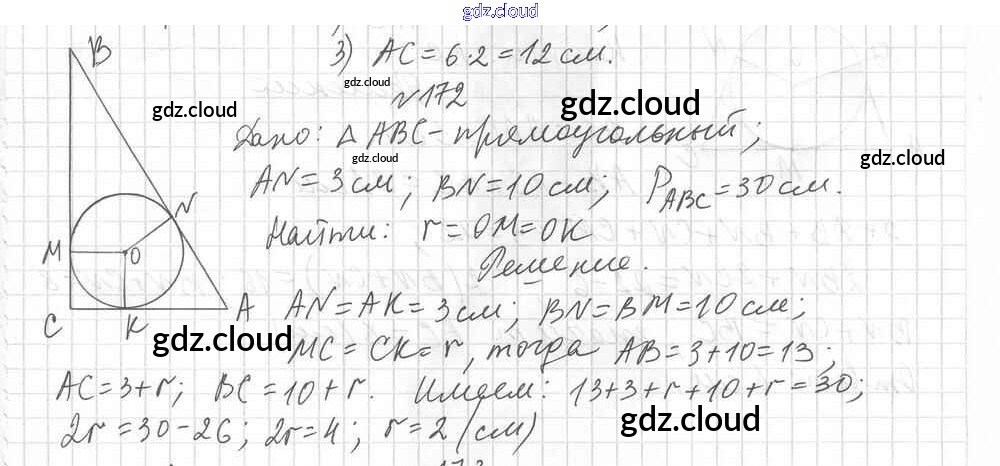 gdz.cloud
3) AC = 6·2 = 12 см.
gdz.cloud
№172
gdz.cloud gdz.cloud
Дано: △ ABC - прямоугольный;
gdz.cloud gdz.cloud
AN = 3 см; BN = 10 см; P_ABC = 30 см.
Найти: r = OM = OK
Решение.
B
N
M O
C K A
AN = AK = 3 см; BN = BM = 10 см;
gdz.cloud
MC = CK = r, тогда AB = 3 + 10 = 13;
AC = 3 + r; BC = 10 + r. Имеем: 13 + 3 + r + 10 + r = 30;
gdz.cloud
2r = 30 - 26; 2r = 4; r = 2 (см)